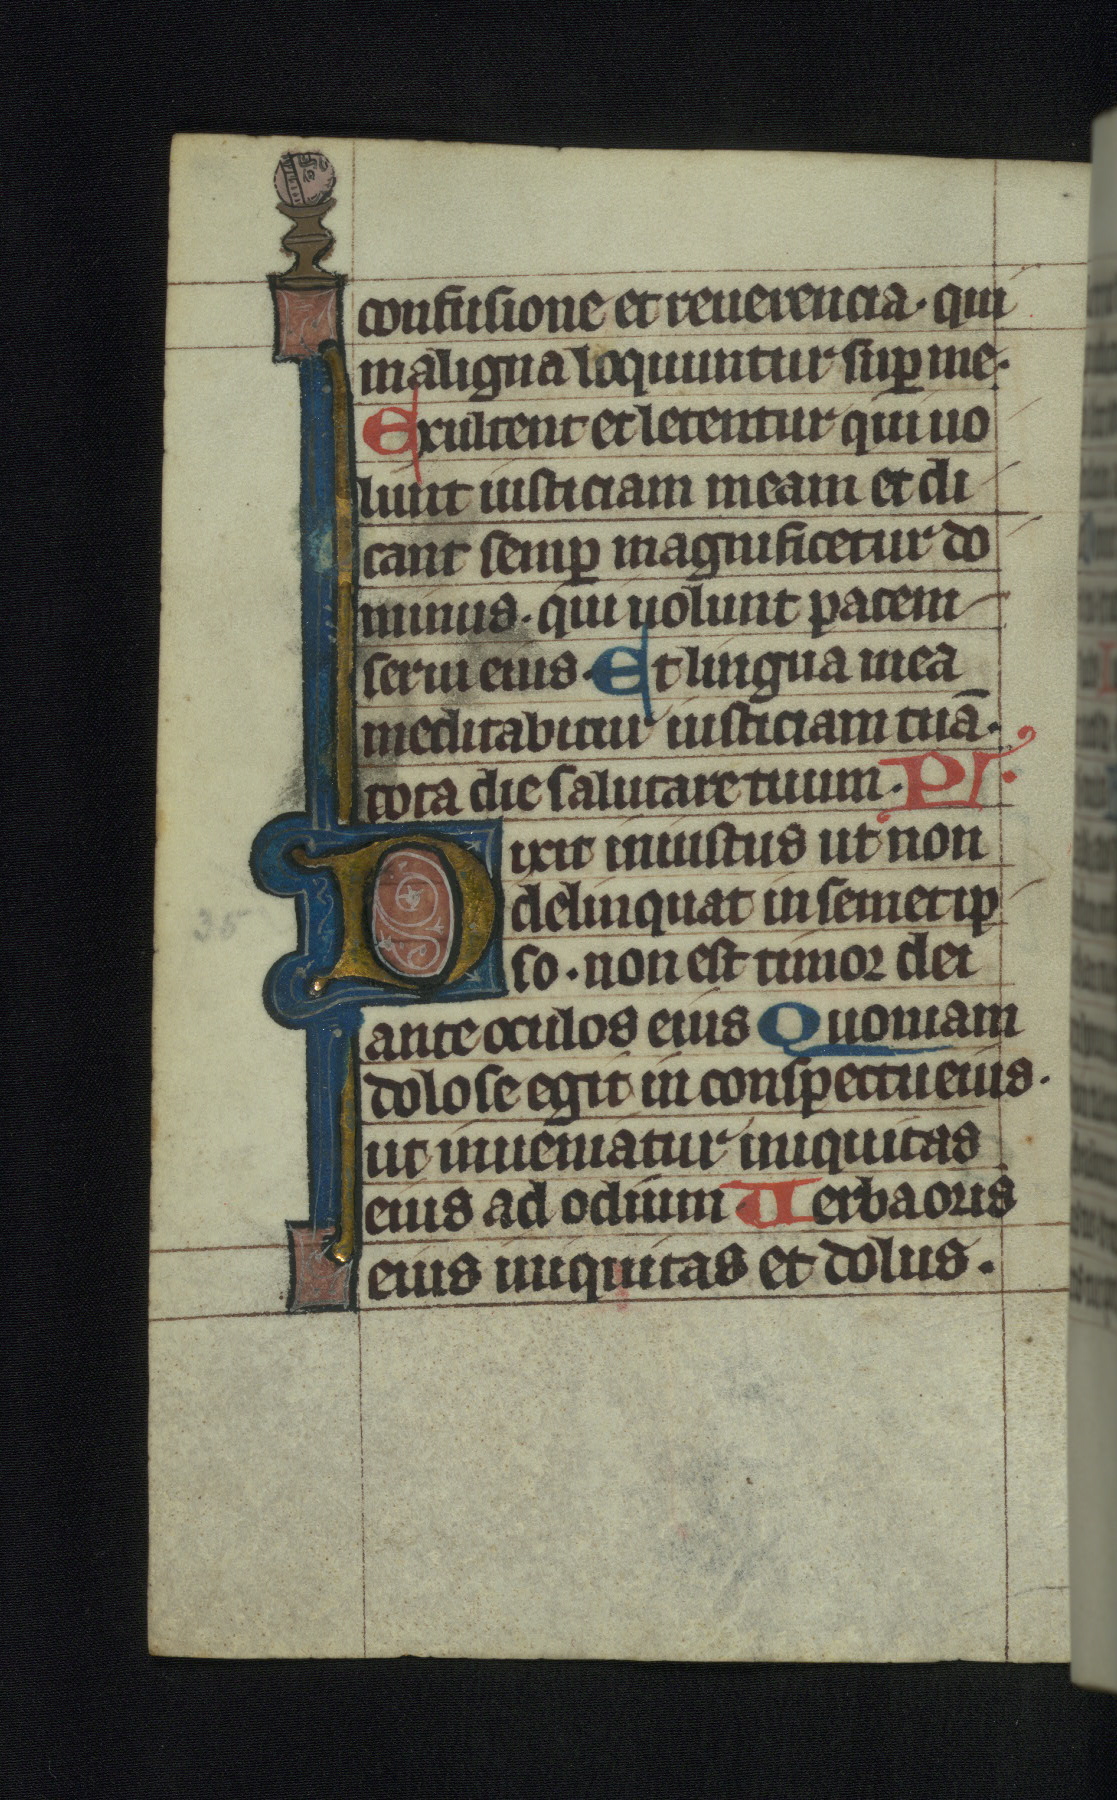 confusione et reuerencia· qui
maligna loquuntur sup me·
Exultent et letentur qui uo
lunt iusticiam meam et di
cant semp magnificetur do
minus· qui uolunt pacem
serui eius· Et lingua mea
meditabitur iusticiam tuā·
tota die salutare tuum· Ps·
Dixit iniustus ut non
delinquat in semetip
so· non est timor dei
ante oculos eius Quoniam
dolose egit in conspectu eius·
ut inueniatur iniquitas
eius ad odium Uerba oris
eius iniquitas et dolus·
35